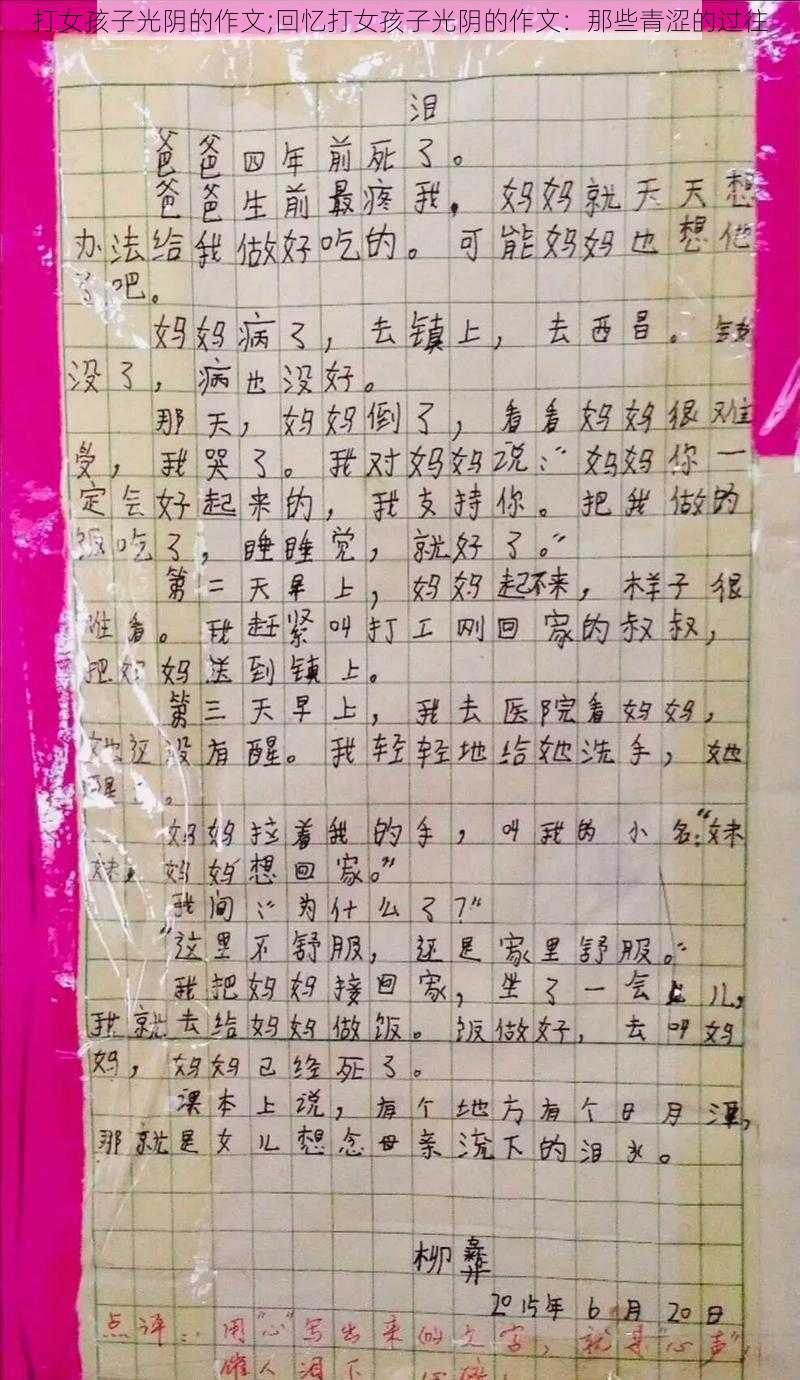 打女孩子光阴的作文;回忆打女孩子光阴的作文：那些青涩的过往
泪
爸爸四年前死了。
爸爸生前最疼我，妈妈就天天想
办法给我做好吃的。可能妈妈也想他
了吧。
妈妈病了，去镇上，去西昌。钱
没了，病也没好。
那天，妈妈倒了，看看妈妈很难
受，我哭了。我对妈妈说：“妈妈你一
定会好起来的，我支持你。把我做的
饭吃了，睡睡觉，就好了。”
第二天早上，妈妈起不来，样子很
难看。我赶紧叫打工刚回家的叔叔，
把妈妈送到镇上。
第三天早上，我去医院看妈妈，
她还没有醒。我轻轻地给她洗手，她
醒了。
妈妈拉着我的手，叫我的小名：“妹
妹，妈妈想回家。”
我问：“为什么了？”
“这里不舒服，还是家里舒服。”
我把妈妈接回家，坐了一会儿，
我就去给妈妈做饭。饭做好，去叫妈
妈，妈妈已经死了。
课本上说，有个地方有个日月潭，
那就是女儿想念母亲流下的泪水。
柳彝
2015年6月20日
点评：用“心”写出来的文字，就是“心声”，
催人泪下